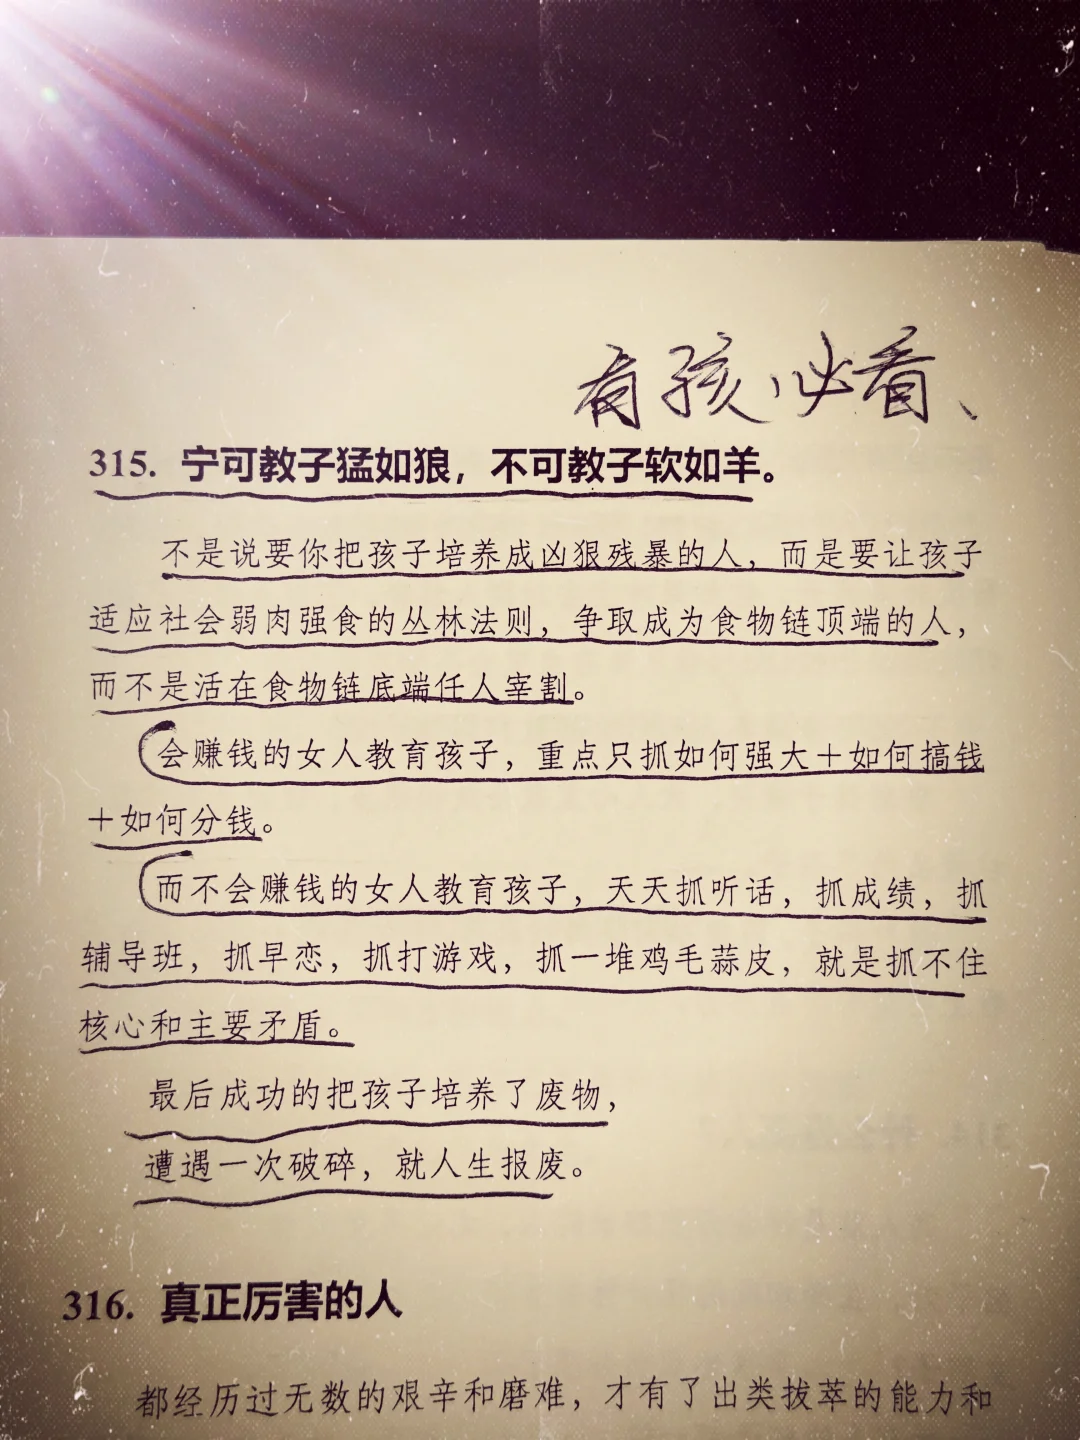 有孩必看、
315. 宁可教子猛如狼，不可教子软如羊。
不是说要你把孩子培养成凶狠残暴的人，而是要让孩子
适应社会弱肉强食的丛林法则，争取成为食物链顶端的人，
而不是活在食物链底端任人宰割。
会赚钱的女人教育孩子，重点只抓如何强大＋如何搞钱
＋如何分钱。
而不会赚钱的女人教育孩子，天天抓听话，抓成绩，抓
辅导班，抓早恋，抓打游戏，抓一堆鸡毛蒜皮，就是抓不住
核心和主要矛盾。
最后成功的把孩子培养了废物，
遭遇一次破碎，就人生报废。
316. 真正厉害的人
都经历过无数的艰辛和磨难，才有了出类拔萃的能力和